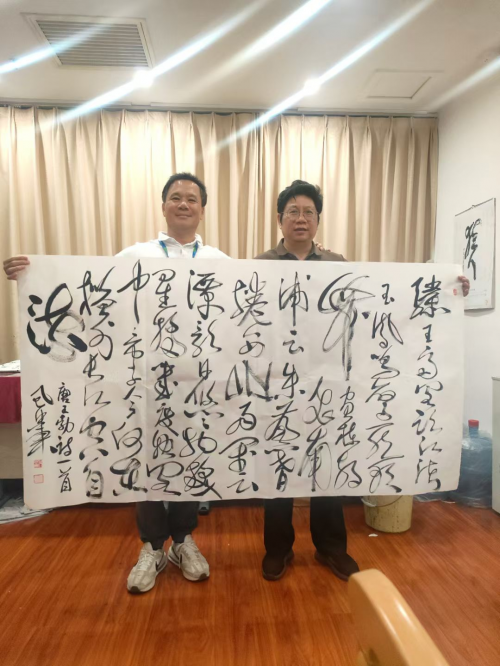 滕王高阁临江渚
佩玉鸣鸾罢歌
舞画栋朝
飞南
浦云朱帘暮
卷西山雨闲云
潭影日悠悠物换
星移几度秋阁
中帝子今何在
槛外长江空自
流
唐王勃诗一首